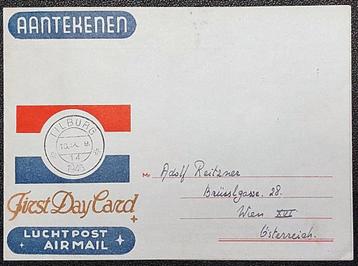 AANTEKENEN
TILBURG
14
First Day Card
LUCHTPOST
AIRMAIL
Adolf Reitzner
Brüsslgasse. 28.
Wien XVI
Österreich.